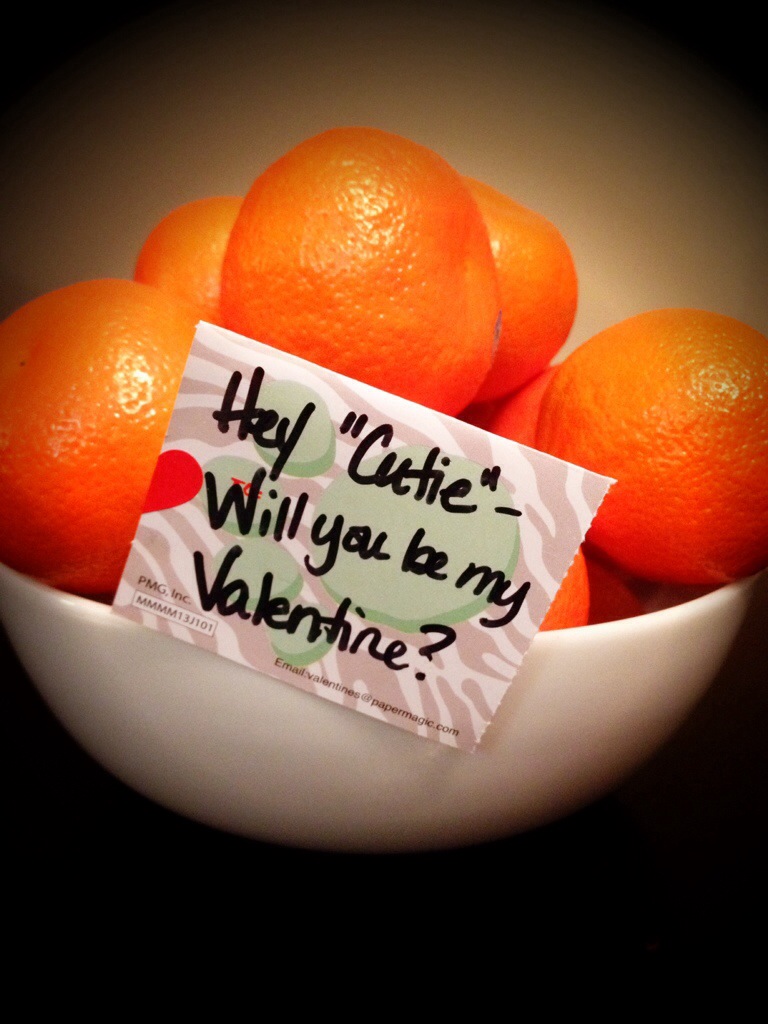 Hey "Cutie" -
TO:
Will you be my
Valentine?
PMG, Inc.
MMMM13J101
Email:valentines@papermagic.com